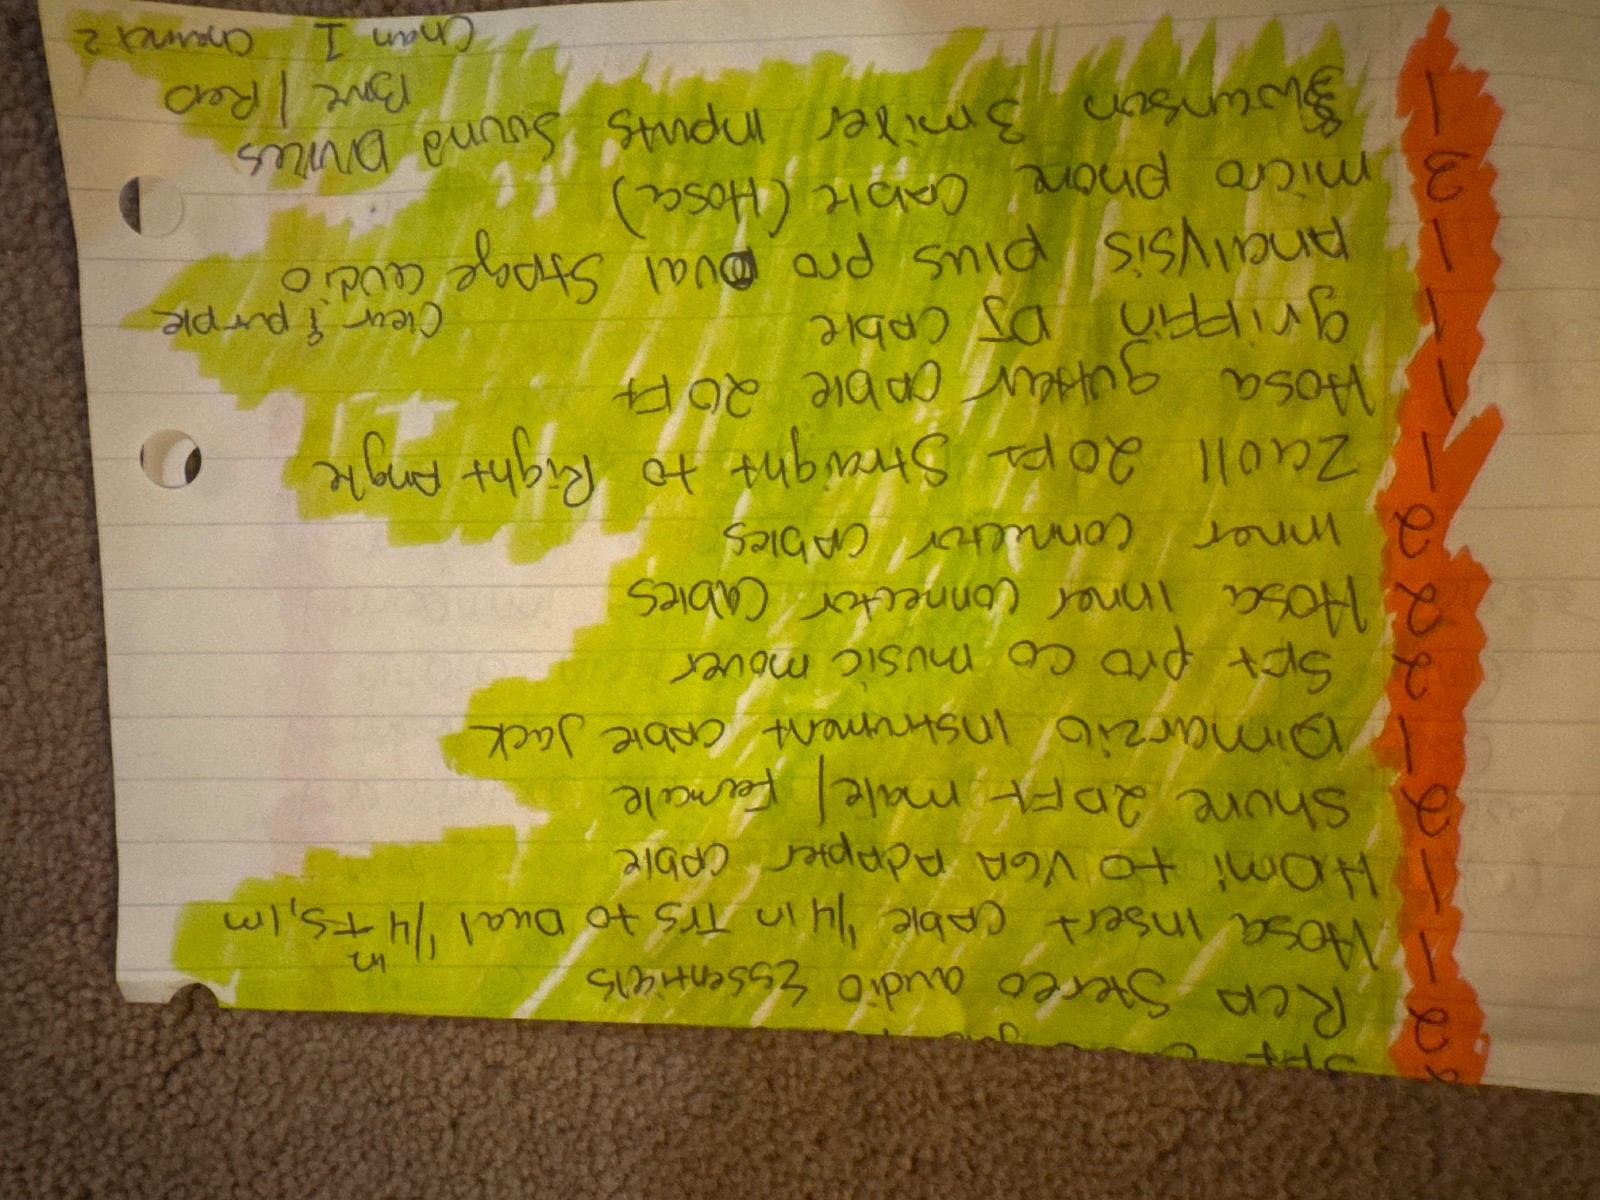 2 5ft
2 RCA Stereo audio Essentials
1 Hosa Insert Cable 1/4 in TRS to Dual 1/4 in TS, 1m
1 HDmi to VGA Adapter cable
2 Shure 20Ft male/Female
1 Dimarzio instrument cable Jack
2 5Ft pro co music mover
2 Hosa inner connector Cables
2 inner connector cables
1 Zaoll 20Ft Straight to Right Angle
1 Hosa guitar cable 20Ft
1 griffin DJ cable Clear & purple
1 Analysis plus pro Dual Stage audio
3 micro phone cable (Hosa)
1 Swunson 3 mixer inputs Sound Divices
Blue / Red
Chan 1 Channel 2